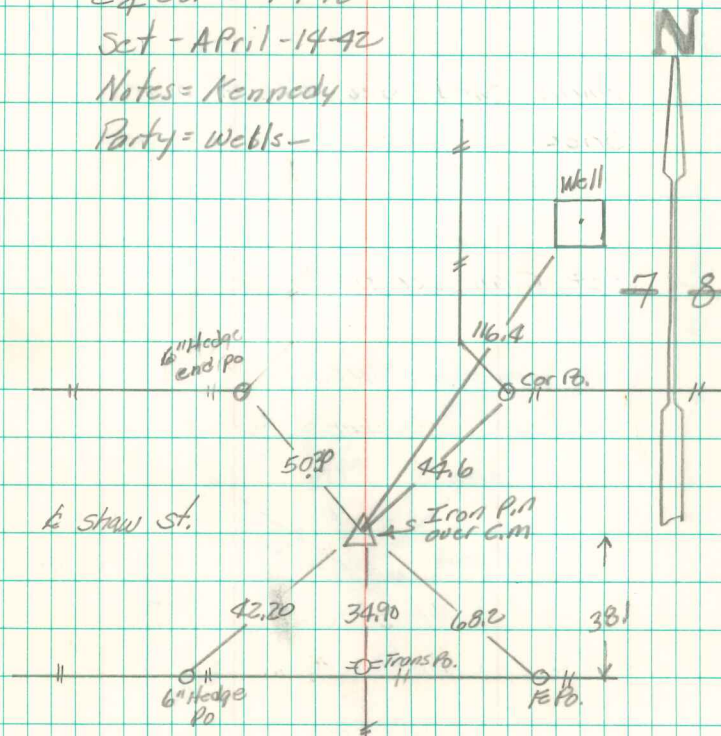 Set - April - 14-42
Notes = Kennedy
Party = Webls -
N
Well
7 8
116.4
6" Hedge
end po
Cor Po.
44.6
Shaw St.
Iron Pin
over C.M
42.20
34.90
68.2
381
Trans Po.
6" Hedge
Po
Po.